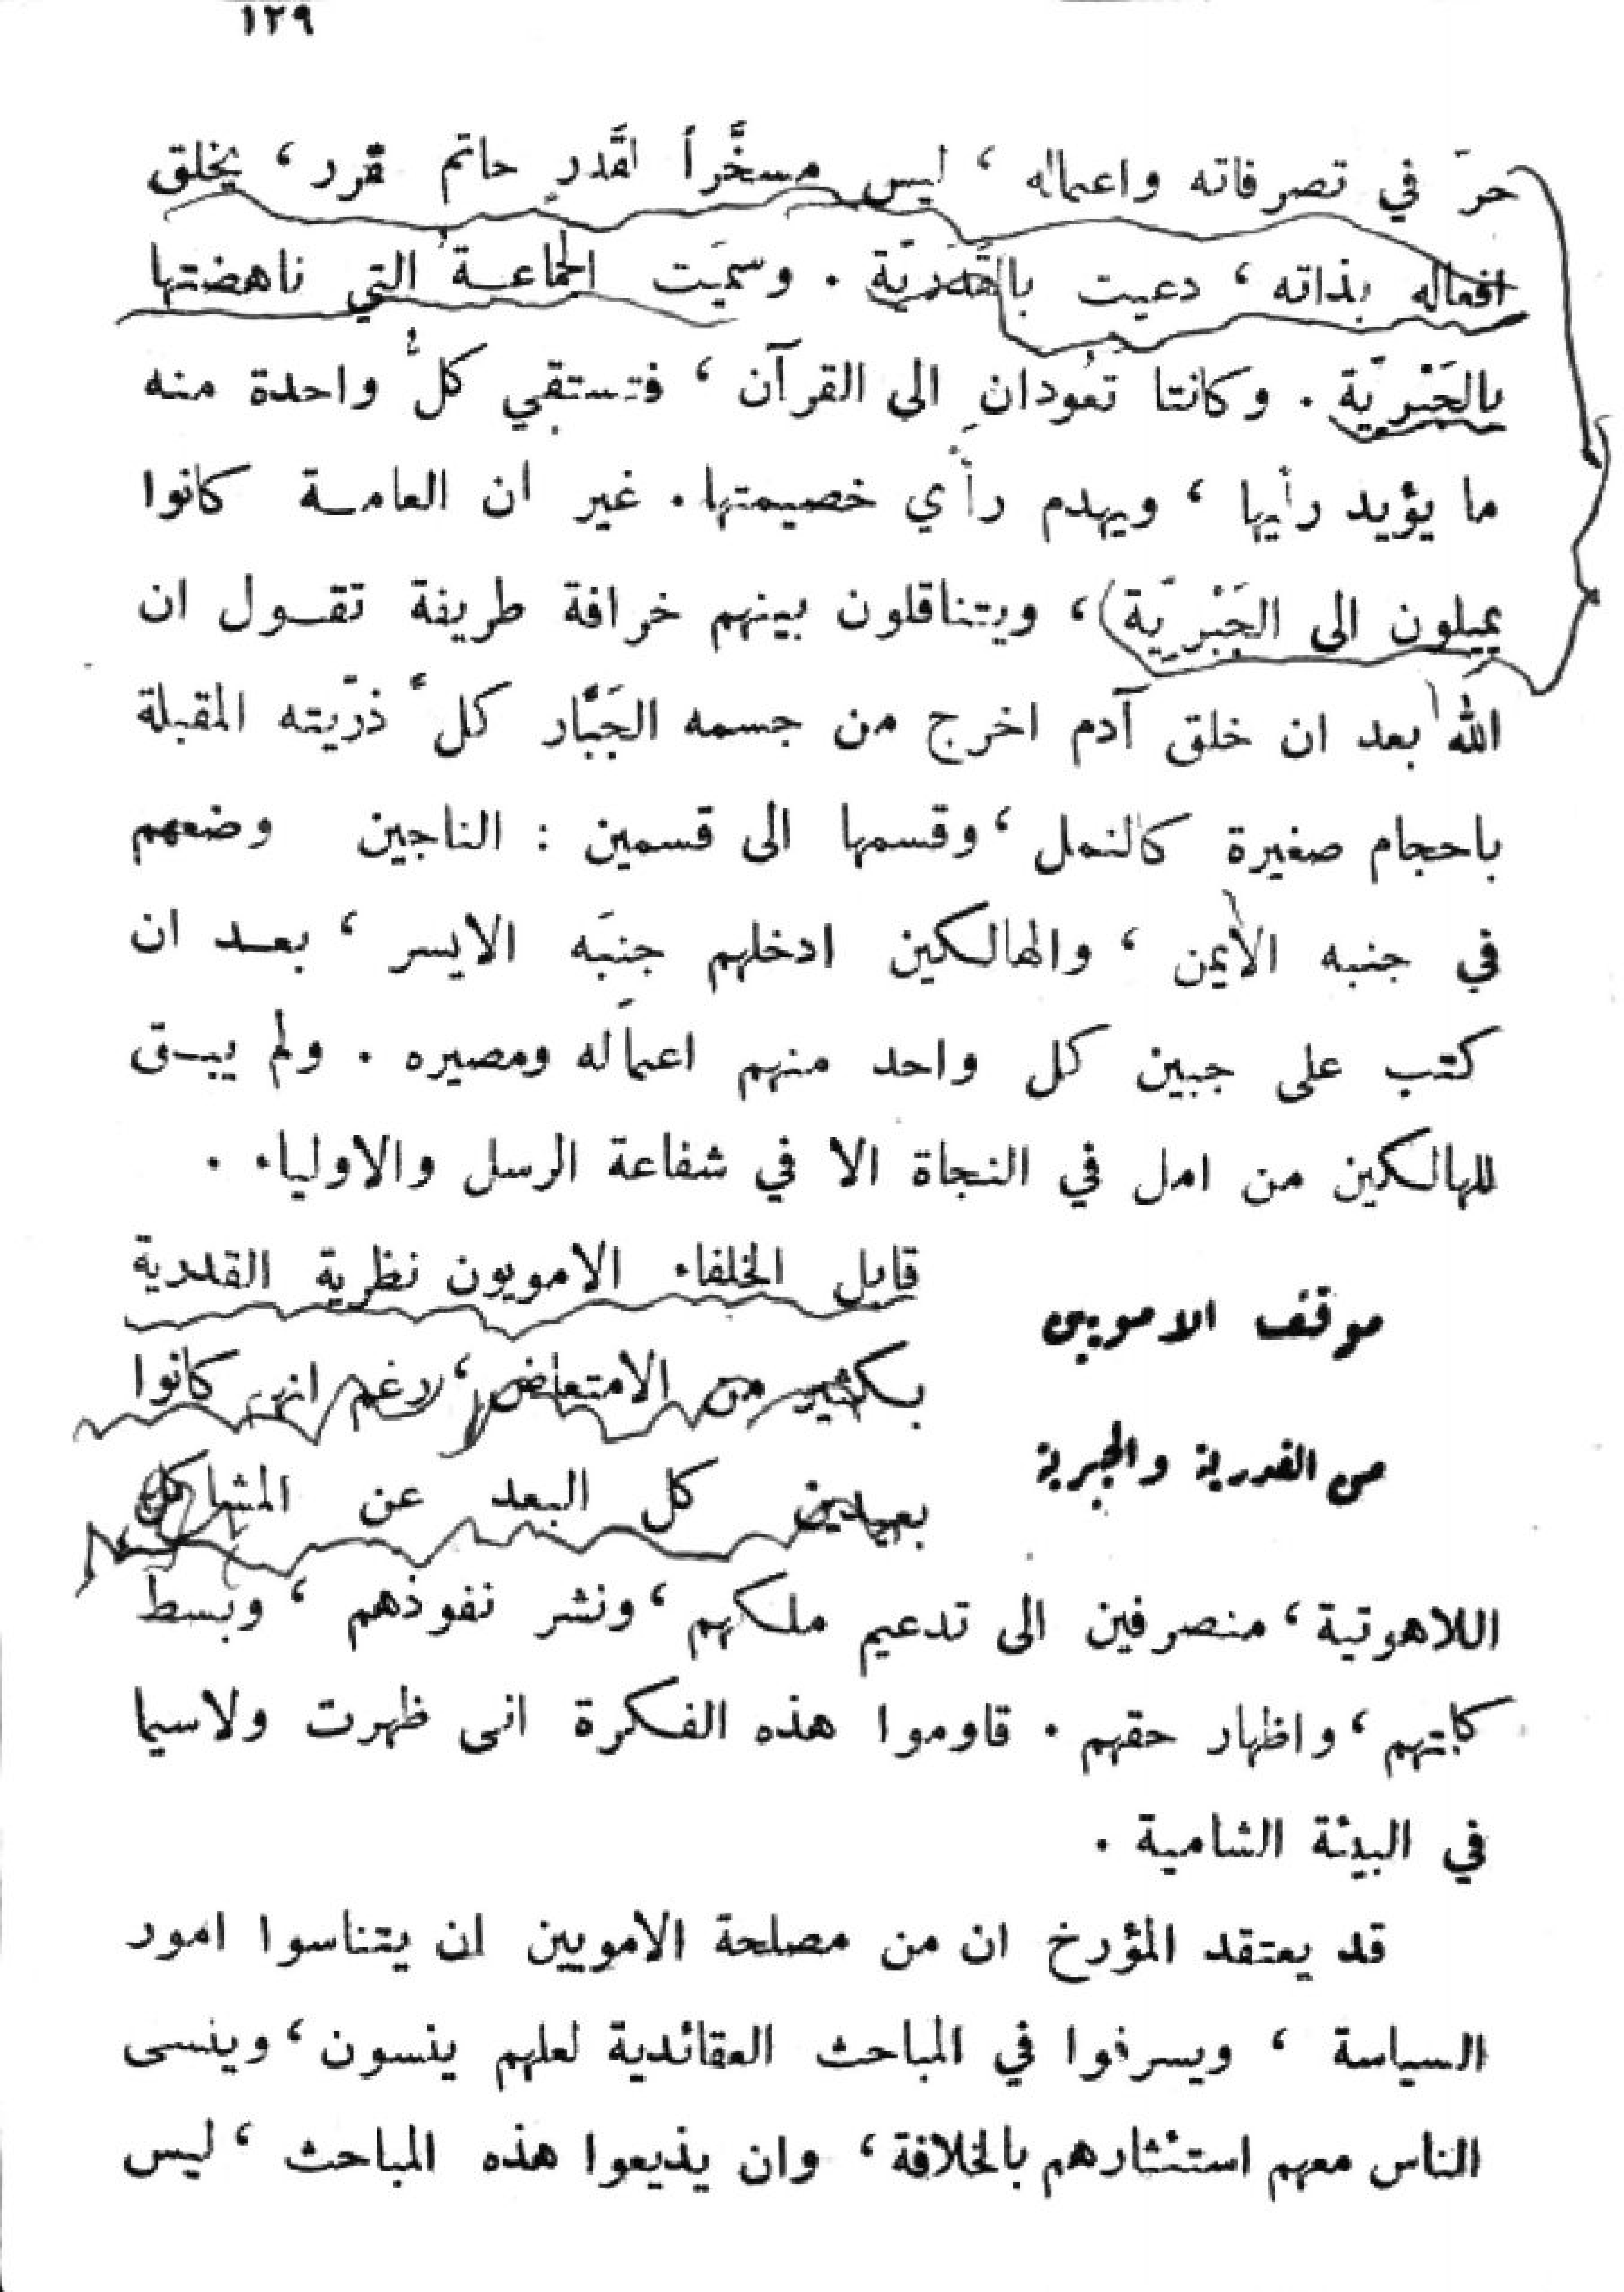 ١٢٩
حرّ في تصرفاته واعماله ، ليس مسخَّراً لقَدرٍ حاتم قرر ، يخلق
افعاله بذاته ، دعيت بالقَدَريّة . وسميَت الجماعــةُ التي ناهضتها
بالجَبْريّة . وكانتا تعُودانِ الى القرآن ، فتستقي كلُّ واحدة منه
ما يؤيد رأيها ، ويهدم رأْي خصيمتها . غير ان العامــة كانوا
يميلون الى الجَبْريّة ، ويتناقلون بينهم خرافة طريفة تقــول ان
اللهَ بعد ان خلق آدم اخرج من جسمه الجَبَّار كلَّ ذرّيته المقبلة
باحجام صغيرة كالنمل ، وقسمها الى قسمين : الناجين وضعهم
في جنبه الأيمن ، والهالكين ادخلهم جنبَه الايسر ، بعــد ان
كتب على جبين كل واحد منهم اعمالَه ومصيره . ولم يبــق
للهالكين من امل في النجاة الا في شفاعة الرسل والاولياء .
موقف الامويين
من القدرية والجبرية
قابل الخلفاء الامويون نظرية القدرية
بكثير من الامتعاض ، لا غم انهم كانوا
بعيدين كل البعد عن المشاكل
اللاهوتية ، منصرفين الى تدعيم ملكهم ، ونشر نفوذهم ، وبسط
كلمتهم ، واظهار حقهم . قاوموا هذه الفكرة انى ظهرت ولاسيما
في البيئة الشامية .
قد يعتقد المؤرخ ان من مصلحة الامويين ان يتناسوا امور
السياسة ، ويسرفوا في المباحث العقائدية لعلهم ينسون ، وينسى
الناس معهم استئثارهم بالخلافة ، وان يذيعوا هذه المباحث ، ليس